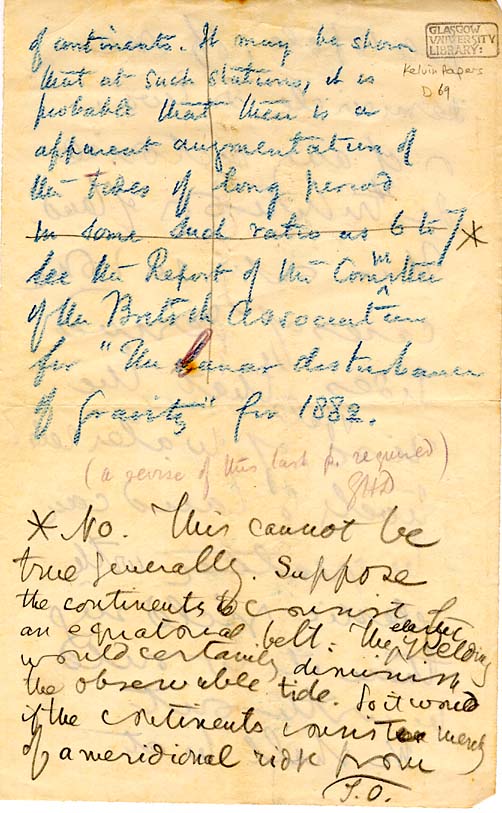 GLASGOW
UNIVERSITY
LIBRARY:
Kelvin Papers
D 69
of continents. It may be shown
that at such stations, it is
probable that there is a
apparent augmentation of
the tides of long period
in some such ratio as 6 to 7 *
See the Report of the Committee
of the British Association
for "The Lunar disturbance
of Gravity" for 1882.
(a revise of this last p. required)
GHD
* No. This cannot be
true generally. Suppose
the continents to consist of
an equatorial belt. The elastic yielding
would certainly diminish
the observable tide. So it would
if the continents consisted merely
of a meridional ridge from
T.O.